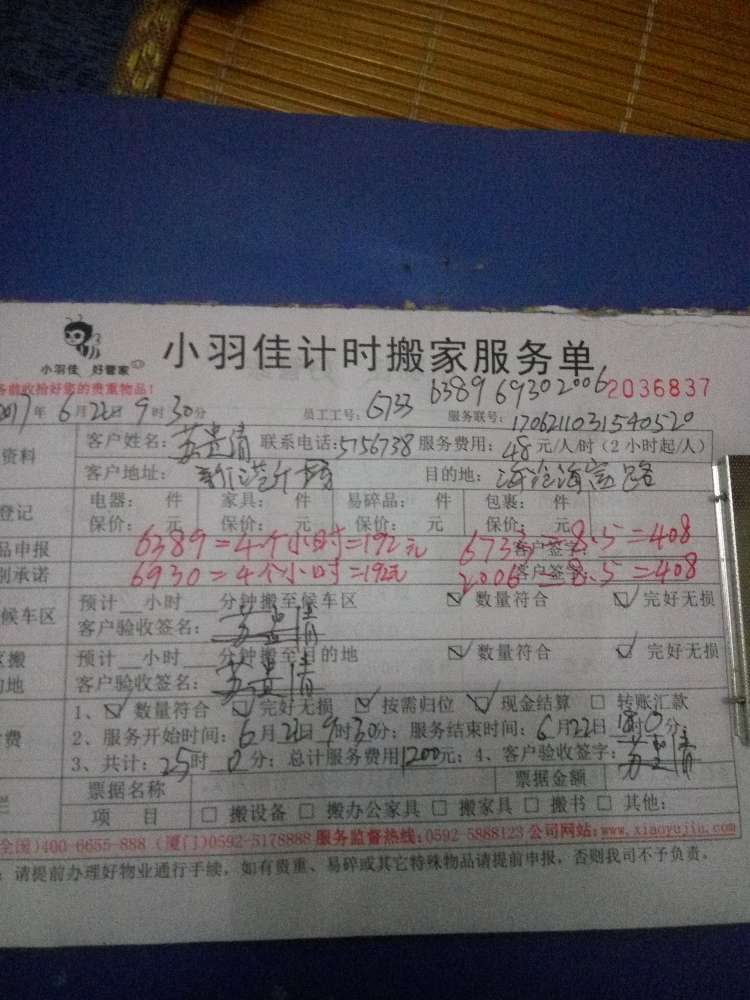 小羽佳计时搬家服务单
小羽佳 好管家
前收拾好您的贵重物品!
6389 6930 2006 2036837
2017年6月22日9时30分 员工工号: 6733 服务联号: 1706211031540520
资料 客户姓名: 苏贵清 联系电话: 5156738 服务费用: 48元/人/时(2小时起/人)
客户地址: 目的地: 海沧海富路
登记 电器: 件 家具: 件 易碎品: 件 包裹: 件
保价: 元 保价: 元 保价: 元 保价: 元
品申报 6389=4个小时=192元 6733=8.5=408 客户签字:
别承诺 6930=4个小时=192元 2006=8.5=408 客户签字:
候车区 预计__小时__分钟搬至候车区 ☑ 数量符合 ☑ 完好无损
客户验收签名: 苏贵清
搬 预计__小时__分钟搬至目的地 ☑ 数量符合 ☑ 完好无损
的地 客户验收签名: 苏贵清
1、☑ 数量符合 ☑ 完好无损 ☑ 按需归位 ☑ 现金结算 □ 转账汇款
费 2、服务开始时间: 6月22日9时30分; 服务结束时间: 6月22日18时0分;
3、共计: 25时0分; 总计服务费用1200元; 4、客户验收签字: 苏贵清
票据名称 票据金额
栏 项 目 □ 搬设备 □ 搬办公家具 □ 搬家具 □ 搬书 □ 其他:
全国)400-6655-888 (厦门)0592-5178888 服务监督热线:0592 5888123 公司网站:www.xiaoyujia.com
: 请提前办理好物业通行手续, 如有贵重、易碎或其它特殊物品请提前申报, 否则我司不予负责。